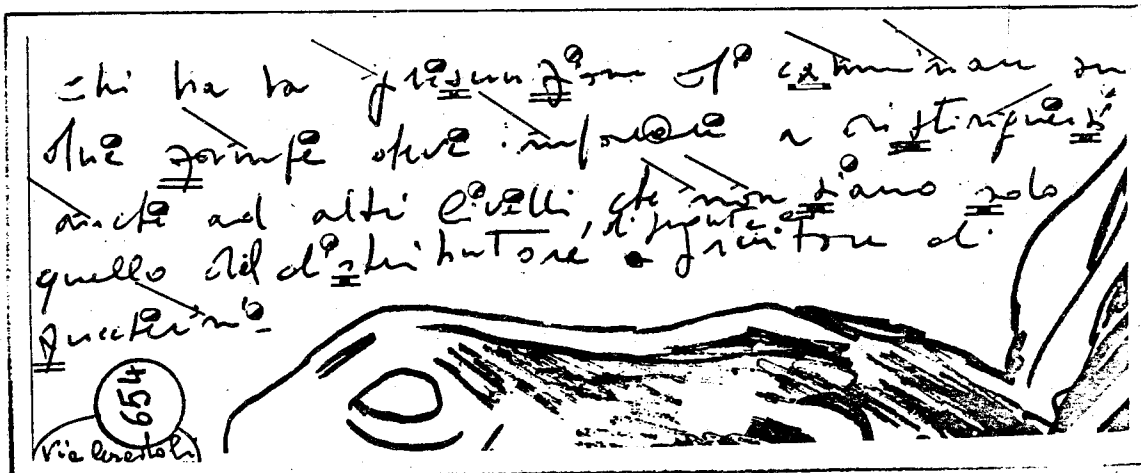 chi ha la presunzione di camminare su
due zampe deve imparare a distinguersi
anche ad altri livelli, che non siano solo
quello del distributore e gestore di
quattrini
654
Via Crestoli